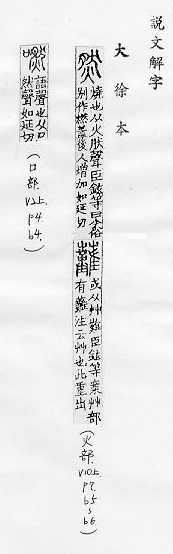 說文解字
大徐本
然 燒也从火肰聲臣鉉等曰今俗
別作燃蓋後人增加如延切
或从艸難臣鉉等案艸部
有䕼注云艸也此重出
(火部. V10上. P7. b5~b6.)
嘫 語聲也从口
然聲如延切
(口部. V2上. P4. b4.)